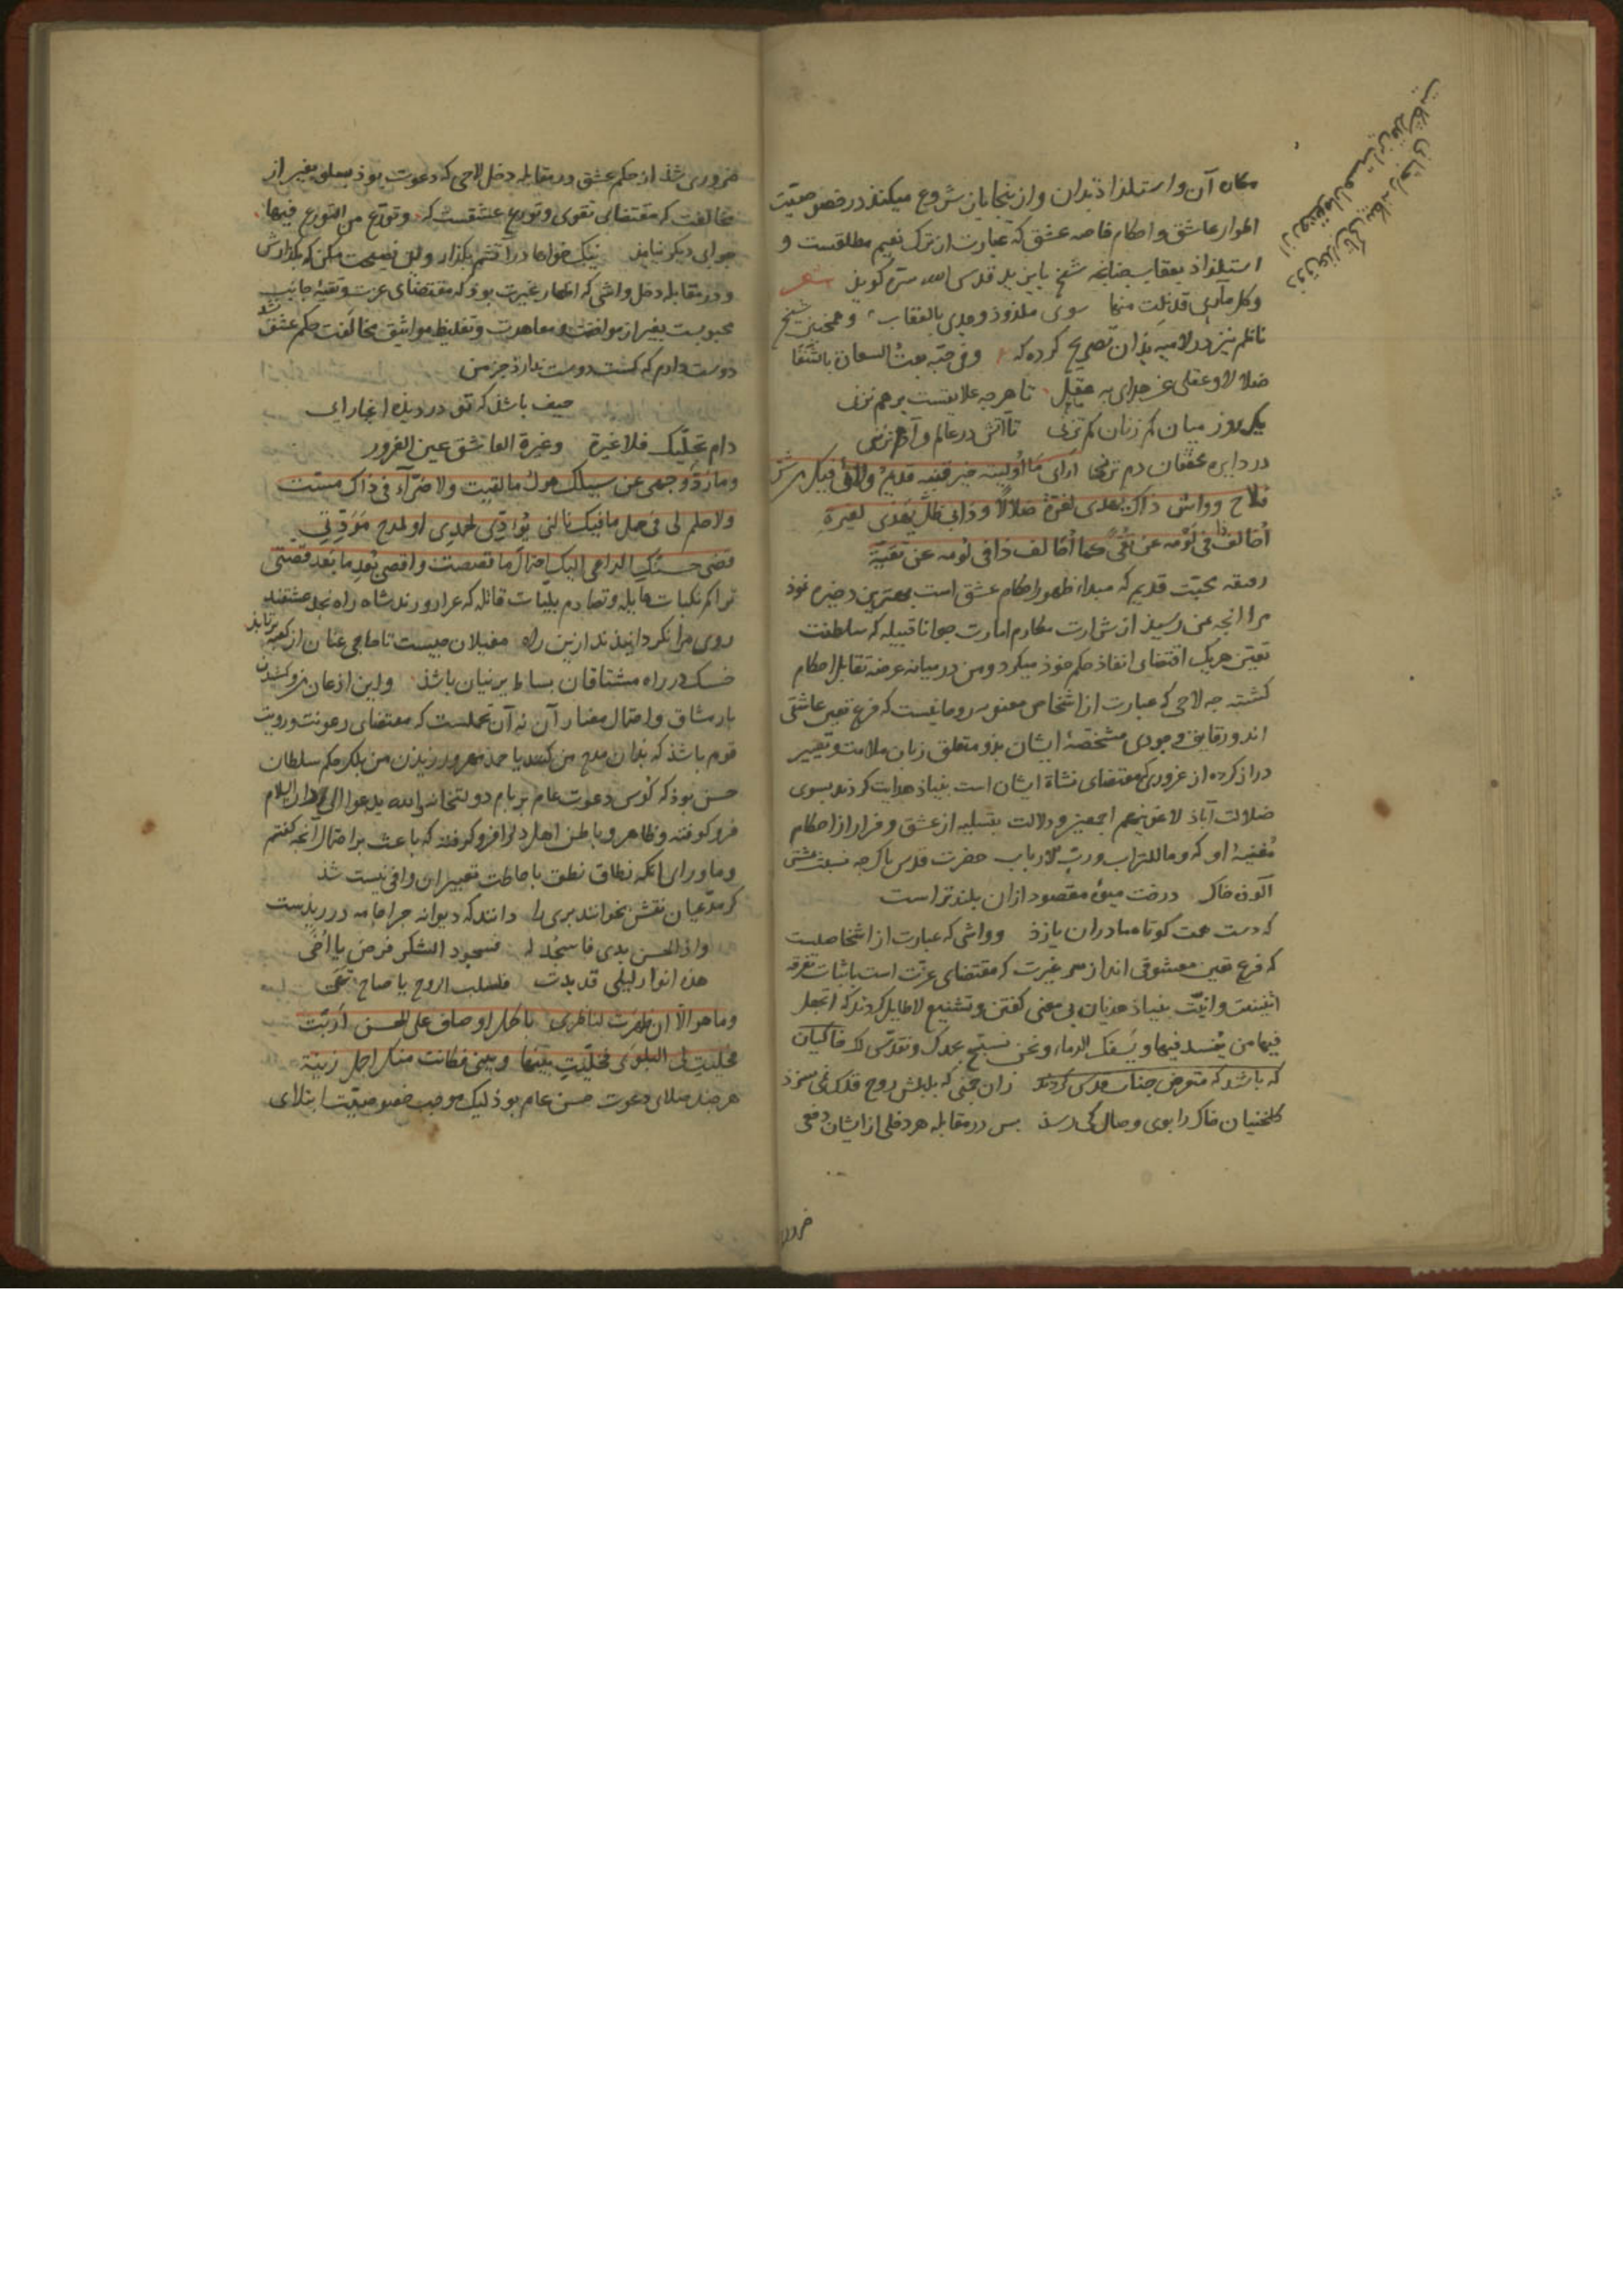 مکاه آن و استلذاذ بدان و از ینجا باز شروع میکند در خصوصیّت
اطوار عاشق و احکام خاصه عشق که عبارت از ترک نعیم مطلقست و
استلذاذ بعقاب چنانچه شیخ بایزید قدس الله سرّه کوید شعر
وکل مآربی قد نلت منها سوی ملذوذ وجدی بالعقاب و همچنین شیخ
ناظم نیز در لامیه بذان تصریح کرده که وفی حبّه بعت السعادة بالشقا
ضلالا وعقلی عن هدای به عقل تا هرچه علایقست برهم نزنی
یک روز میان کم زنان کم نزنی تا آتش در عالم و آدم نزنی
در دایره محققان دم نزنی أرانی ما أولیته خیر قنیة قدیم ولائی فیک من شرّ
فلاح وواش ذاک یهدی لغرّة ضلالا وذا بی ظلّ یهذی لغیرة
أخالف ذا فی لومه عن تقی کما أخالف ذا فی لومه عن تقیّة
محبّت قدیم که مبداء ظهور احکام عشق است بهترین ذخیره خوذ
مرا انچه بمن رسیذ از شرارت مکارم امارت جوانا قبیله که سلطنت
تعیّن هریک اقتضای انفاذ حکم خوذ میکرد و من در میانه عرضه تقابل احکام
کشته چه لاحی که عبارت از اشخاص معنوی روحانیست که فرع تعین عاشقی
اند و رقایق وجودی مشخّصهٔ ایشان بذو متعلق زبان ملامت و تعییر
دراز کرده از غروری که مقتضای نشاة ایشان است بنیاذ هدایت کردند بسوی
ضلالت آباذ لاغوینهم اجمعین و دلالت بتسلیه از عشق و فرار از احکام
او که وما للتراب ورب الارباب حضرت قدس پاک چه نسبت مشتی
آلوده خاک درخت میوهٔ مقصود ازان بلندترست
که دست همت کوتاه ما دران یازذ و واشی که عبارت از اشخاصیست
که فرع تعین معشوقی اند از سر غیرت که مقتضای عزّت است باثبات تفرقه
اثنینیت و انیّت بنیاذ هذیان بی معنی کفتن و تشنیع لاطایل کردند که أتجعل
فیها من یفسد فیها ویسفک الدماء ونحن نسبّح بحمدک ونقدّس لک خاکیان
که باشند که متعرض جناب قدس کردند زان چمنی که بلبلش روح فلک نمی سزد
کلخنیان خاک را بوی وصال کی رسذ بس در مقابله هر دخلی از ایشان دفعی
ضرور
ضروری شذ از حکم عشق در مقابله دخل لاحی که دعوت بوذ بسلو بغیر از
مخالفت که مقتضای تقوی و تورع عشقست که وتورّع من التورع فیها
جوابی دیکر نیامد نیک خواها در آتشم بکذار وین نصیحت مکن که بکذارش
و در مقابله دخل واشی که اظهار غیرت بوذ که مقتضای عزت و تقیهٔ جانب
محبوبست بغیر از موافقت و معاهدت و تغلیظ مواثیق مخالفت حکم عشق نشد
دوست دارم که کست دوست ندارد جز من
حیف باشد که تو در دیدهٔ اغیار آیی
دام تجلّیک فلا غیرة وغیرة العاشق عین الغرور
وما ردّ وجهی عن سبیلک هول ما لقیت ولا ضرّآء فی ذاک مسّت
ولا حلم لی فی حمل ما فیک نالنی یؤدّی لحمدی او لمدح مودّتی
قضی حسنک الداعی الیک احتمال ما قصصت واقصی بعد ما بعد قصّتی
تراکم نکبات هایله و تصادم بلیّات قاتله که عرا و رندشاه راه نجد عشقند
روی مرا نکردانیذند ازین راه مغیلان چیست تا حاجی عنان از کعبه برتابذ
خسک در راه مشتاقان بساط پرنیان باشذ و این اذعان و کشیدن
بار مشاق و احتمال مضار آن نه آن تحملست که مقتضای رعونت و رویت
قوم باشذ که بذان مدح من کنند یا حمد من ورزیذن من بلکه حکم سلطان
حسن بوذ که کوس دعوت عام بر بام دولتخانه والله یدعو الی دار السلام
فرو کوفته و ظاهر و باطن اهل دل را فرو کرفته که باعث بر احتمال انچه کفتم
و ماورای انکه نطاق نطق باحاطت تعبیر ان وافی نیست شذ
کر مدّعیان نقش بخوانند پری را دانند که دیوانه چرا جامه دریذست
واذ الحسن بدی فاسجد له فسجود الشکر فرض یا أخیّ
هذه انوار لیلی قد بدت فلسلب الروح یا صاح تهیّ
وما هو الا أن ظهرت لناظری باکمل اوصاف علی الحسن أربت
فحلّیت لی البلوی فخلّیت بینها وبینی فکانت منک اجمل زینة
هر چند صلای دعوت حسن عام بوذ لیک موجب خصوصیّت ابتلای